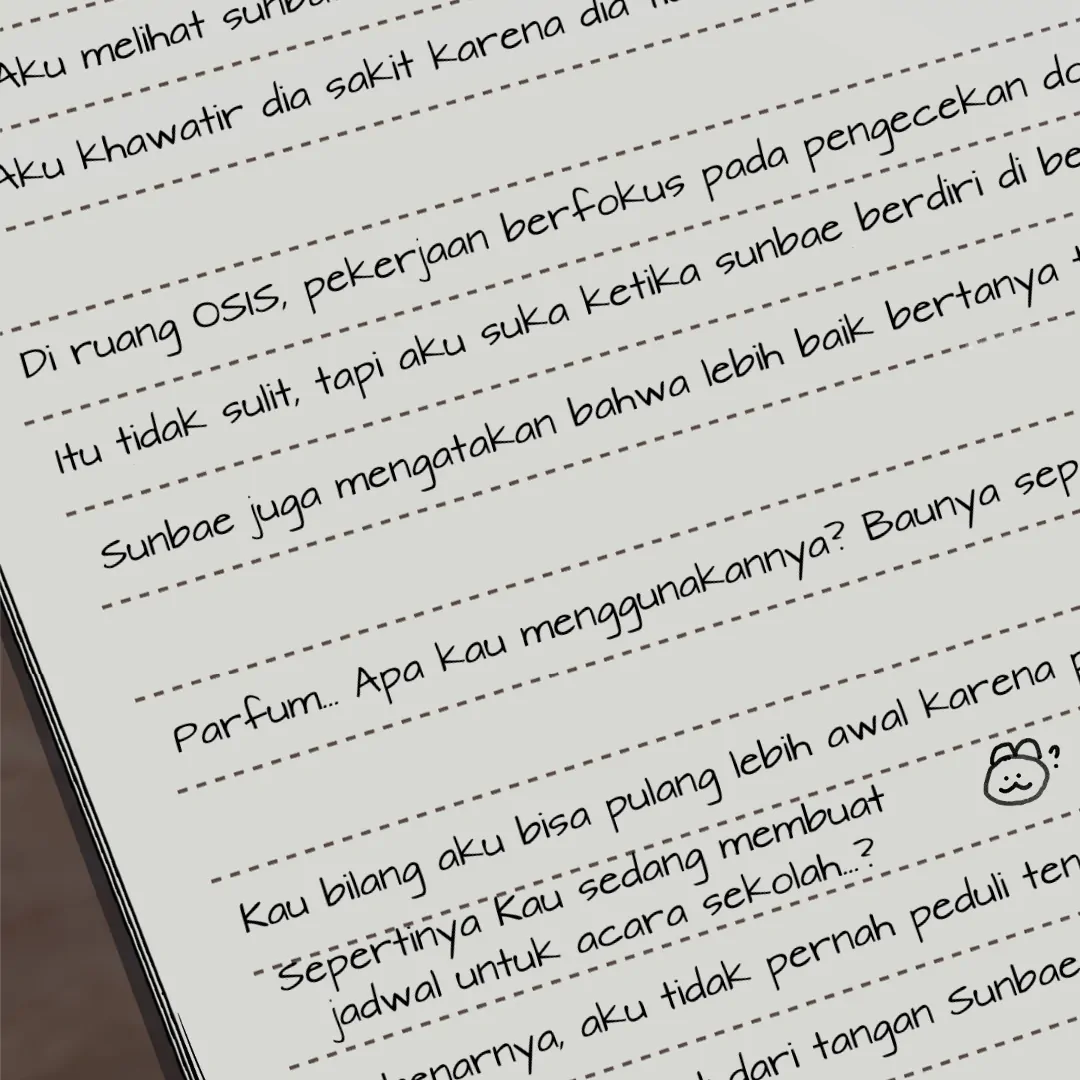 Aku melihat
Aku khawatir dia sakit karena dia
Di ruang OSIS, pekerjaan berfokus pada pengecekan
Itu tidak sulit, tapi aku suka ketika sunbae berdiri di
Sunbae juga mengatakan bahwa lebih baik bertanya
Parfum... Apa kau menggunakannya? Baunya
Kau bilang aku bisa pulang lebih awal karena
?
Sepertinya kau sedang membuat
jadwal untuk acara sekolah...?
aku tidak pernah peduli
dari tangan Sunbae